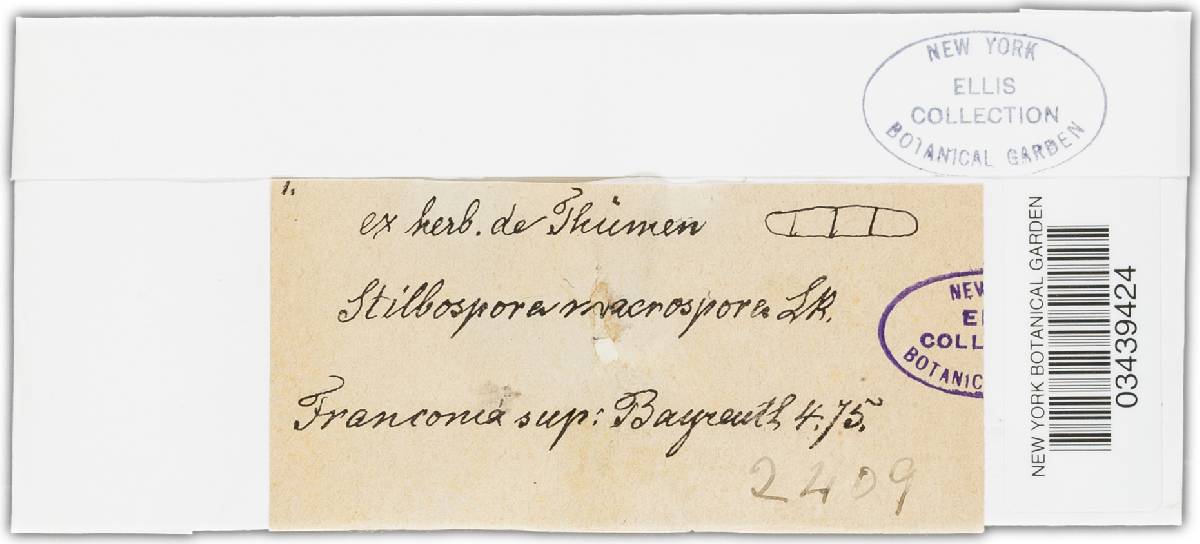 NEW YORK
ELLIS
COLLECTION
BOTANICAL GARDEN
1.
ex herb. de Thümen
Stilbospora macrospora Lk.
NEW
EL
COLL
BOTANIC
Franconia sup: Bayreuth 4.75.
2409
NEW YORK BOTANICAL GARDEN
03439424